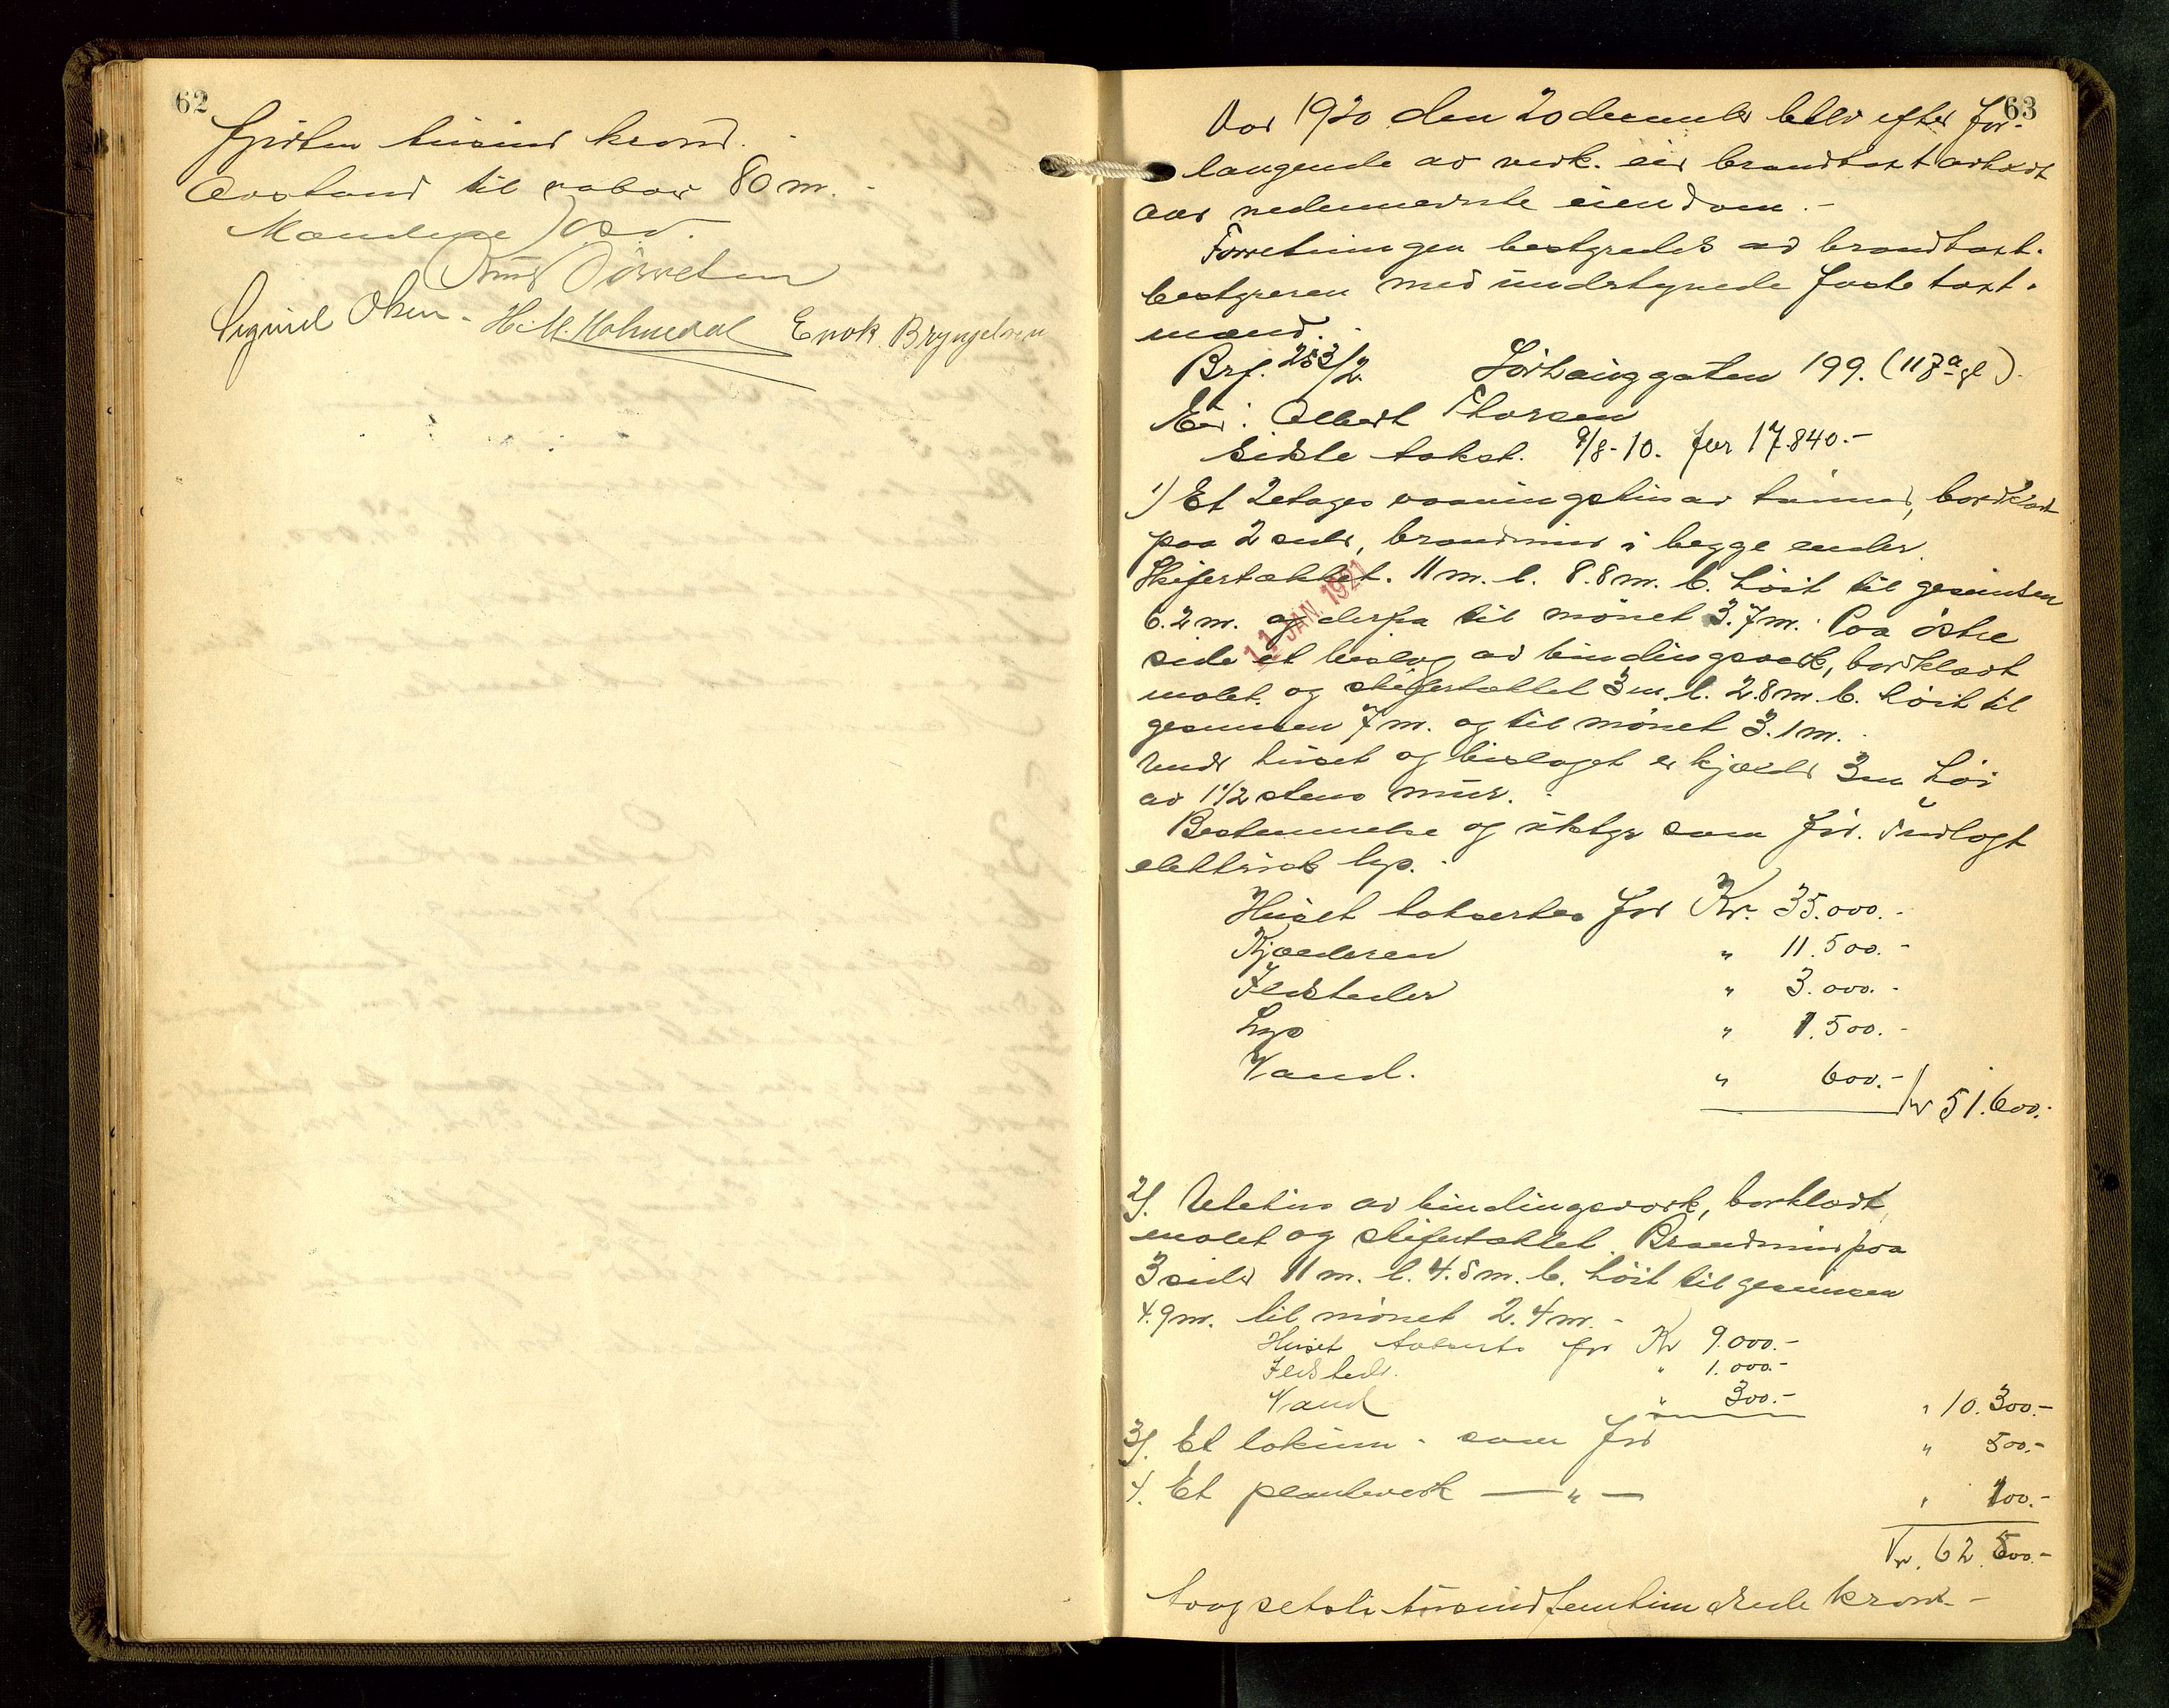 62
Fjorten tusind kroner.
Avstand til nabo 80 m.
Sigurd Olsen. H. M. Holmedal Enok Bryngelsen
63
Aar 1920 den 20 december blev efter for-
langende av vedk. eier brandtakst avholdt
over nedennævnte eiendom.
Forretningen bestyredes av brandtakst-
bestyreren med undertegnede faste takst-
mænd.
Brf. 253/2. Sörhauggaten 199. (117 a gl).
Eier: Albert Thorsen
Sidste takst. 9/8-10. for 17.840.-
1) Et 2etages vaaningshus av tømmer, bordklædt
paa 2 sider, brandmur i begge ender.
Skifertækket. 11 m. l. 8.8 m. b. höit til gesimsen
6.2 m. og derfra til mönet 3.7 m. Paa östre
11 JAN. 1921
side et bislag av bindingsverk, bordklædt
malet. og skifertækket 3 m. l. 2.8 m. b. höit til
gesimsen 7 m. og til mönet 3.1 m.
Under huset og bislaget er kjælder 3 m höi
av 1 1/2 stens mur.
Bestemmelse og utstyr som för. Indlagt
elektrisk lys.
Huset takseres for Kr. 35.000.-
Kjælderen " 11.500.-
Ildsteder " 3.000.-
Lys " 1.500.-
Vand. " 600.- Kr 51.600.-
2). Uthus av bindingsverk, bordklædt,
malet og skifertækket. Brandmur paa
3 sider 11 m. l. 4.5 m. b. höit til gesimsen
4.9 m. til mönet 2.4 m.-
Huset takseres for Kr 9.000.-
Ildsteder. " 1.000.-
Vand " 300.- " 10.300.-
3). Et lokum - som för " 500.-
4. Et plankeverk — " — " 100.-
Kr. 62.500.-
toogsekstitusindfemhundrede kroner.-